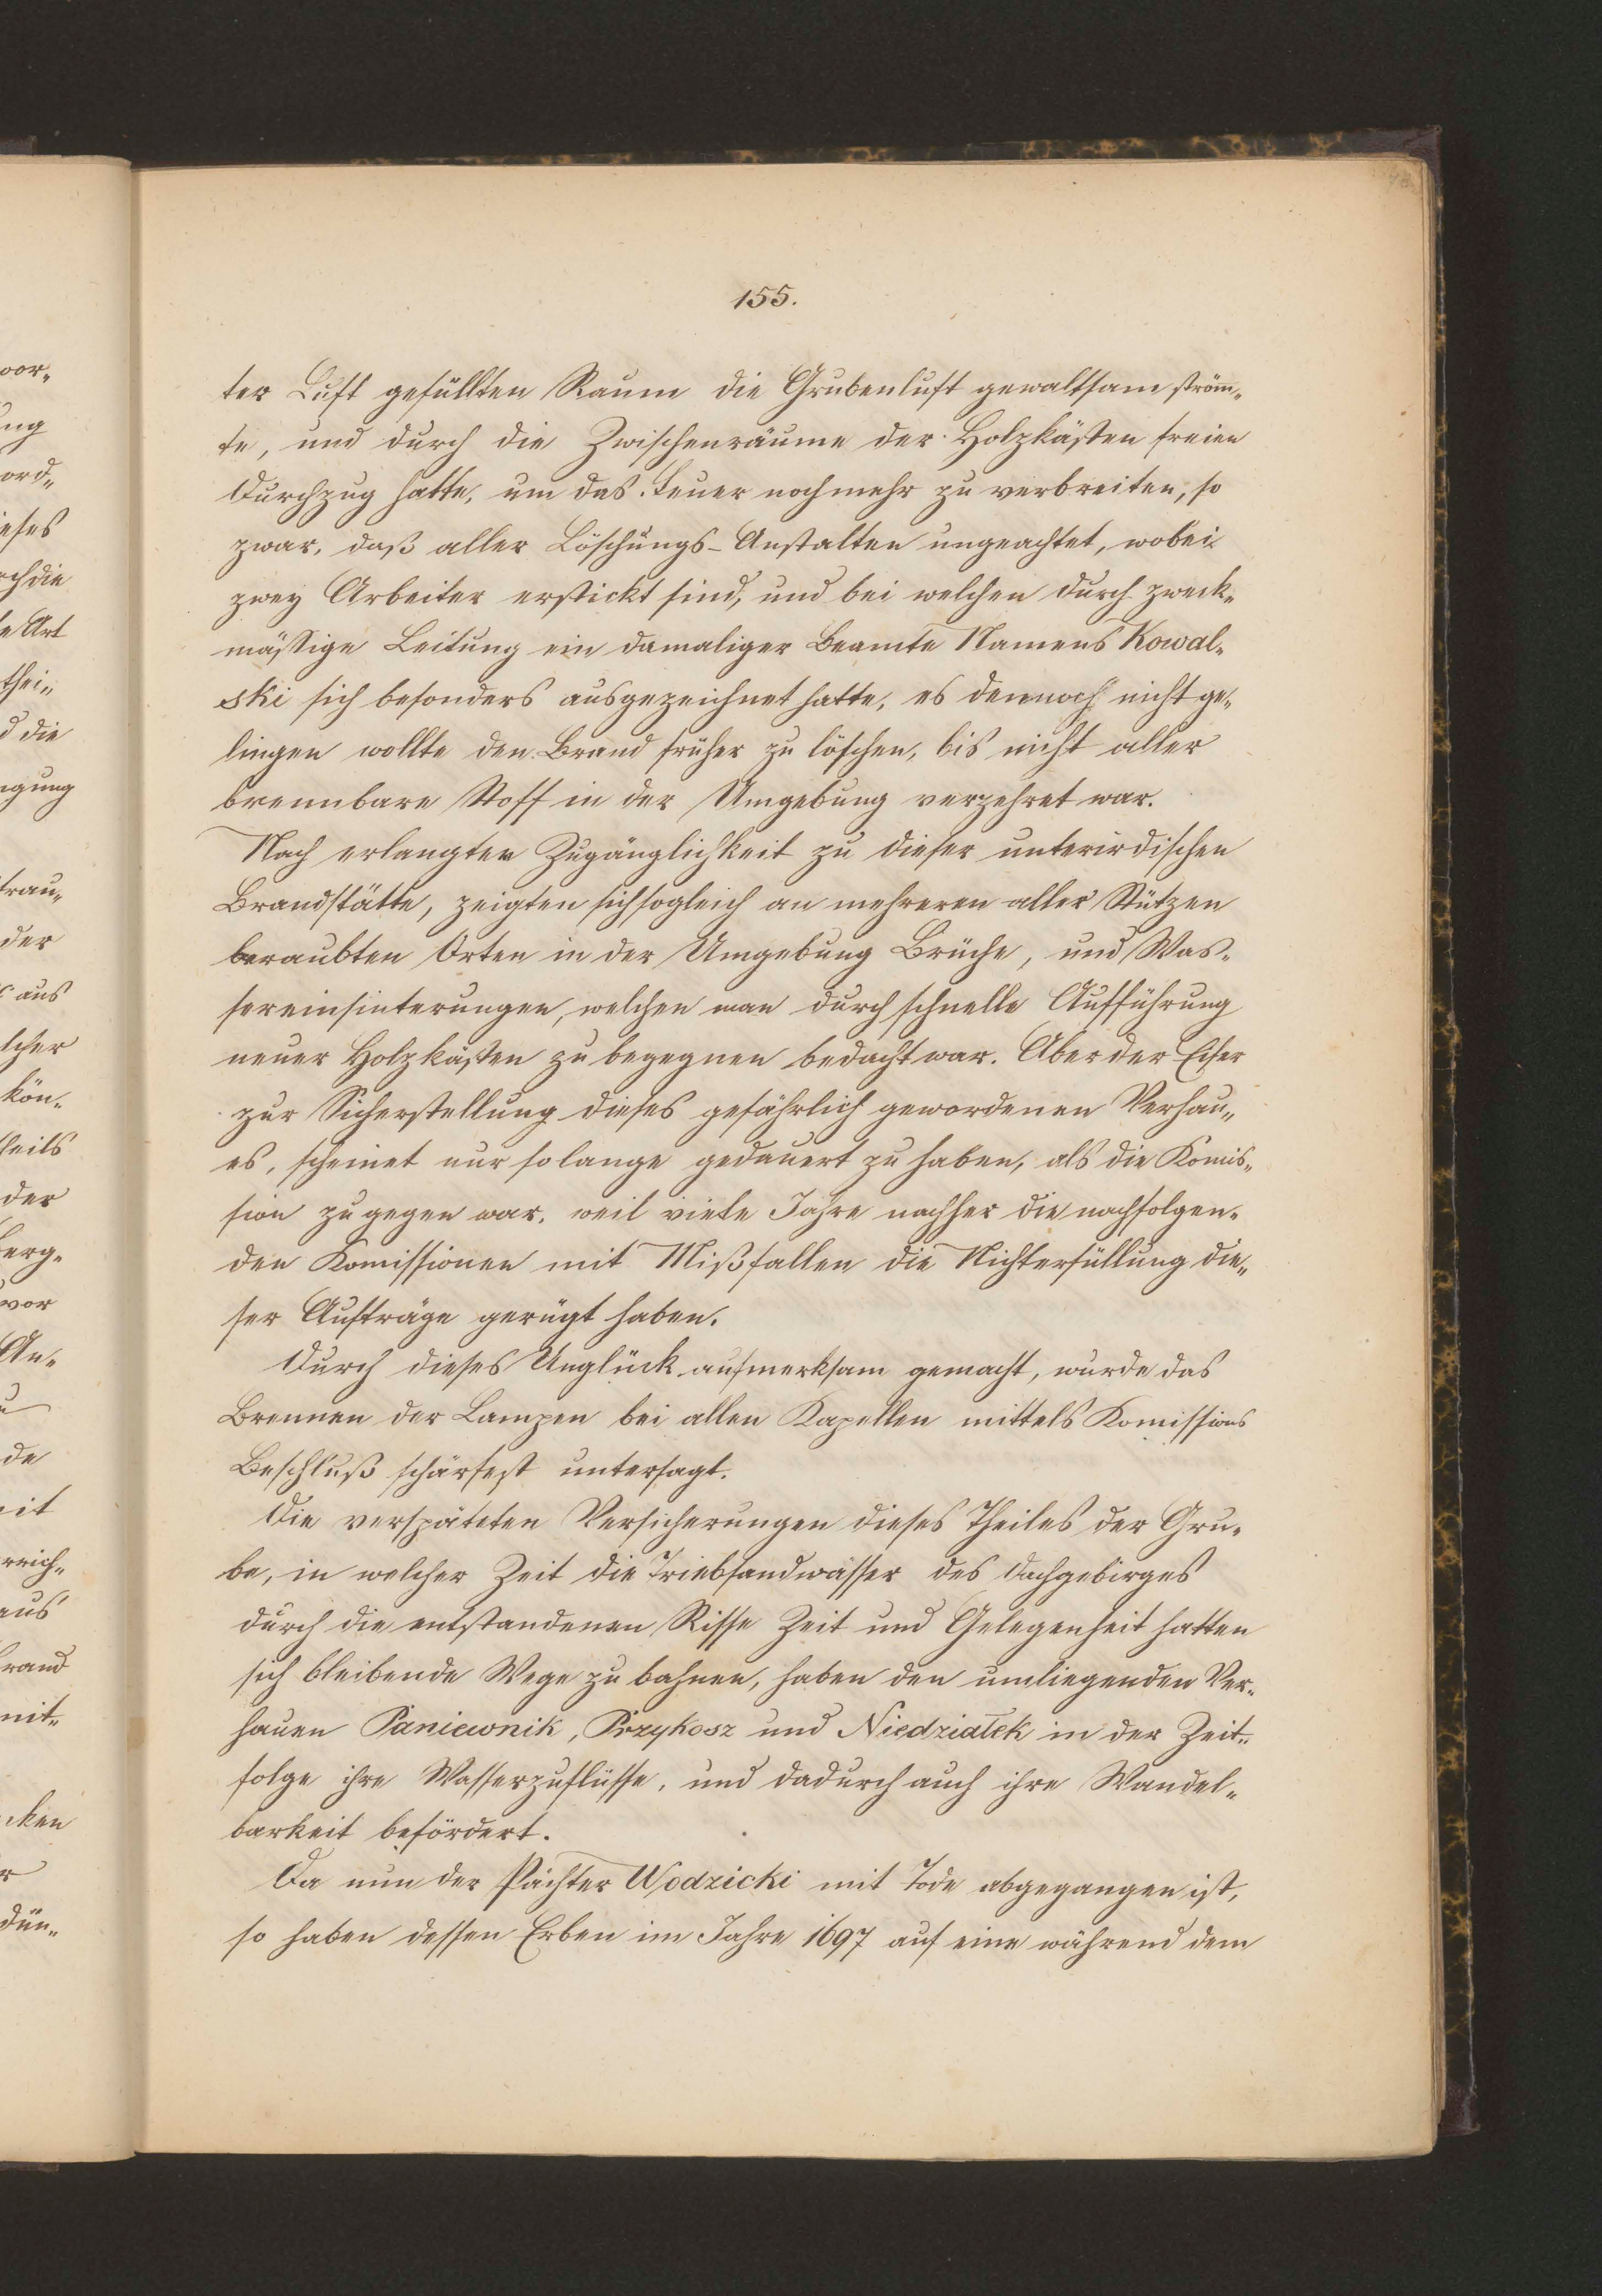 155.
ter Luft gefüllten Raum die Grubenluft gewaltsam ström„
te, und durch die Zwischenräume der Holzkästen freien
Durchzug hatte, um das Feuer noch mehr zu verbreiten, so
zwar, daß aller Löschungs-Anstalten ungeachtet, wobei
zwey Arbeiter erstickt sind, und bei welchen durch zweck„
mässige Leitung ein damaliger Beamte Namens Kowal„
ski sich besonders ausgezeichnet hatte, es dennoch nicht ge„
lingen wollte den Brand früher zu löschen, bis nicht aller
brennbare Stoff in der Umgebung verzehret war.
Nach erlangter Zugänglichkeit zu dieser unterirdischen
Brandstätte, zeigten sich sogleich an mehreren aller Stützen
beraubten Orten in der Umgebung Brüche, und Was„
sereinsinterungen, welchen man durch schnelle Aufführung
neuer Holzkästen zu begegnen bedacht war. Aber der Eifer
zur Sicherstellung dieses gefährlich gewordenen Verhau„
es, scheinet nur solange gedauert zu haben, als die Komis„
sion zugegen war, weil viele Jahre nachher die nachfolgen„
den Komissionen mit Mißfallen die Nichterfüllung die„
ser Aufträge gerügt haben.
Durch dieses Unglück aufmerksam gemacht, wurde das
Brennen der Lampen bei allen Kapellen mittels Komissions
Beschluß schärfest untersagt.
Die verspäteten Versicherungen dieses Theiles der Gru„
be, in welcher Zeit die Triebsandwässer des Dachgebirges
durch die entstandenen Risse Zeit und Gelegenheit hatten
sich bleibende Wege zu bahnen, haben den umliegenden Ver„
hauen Paniewnik, Przykosz und Niedziałek in der Zeit„
folge ihre Wasserzuflüsse, und dadurch auch ihre Wandel„
barkeit befördert.
Da nun der Pächter Wodzicki mit Tode abgegangen ist,
so haben dessen Erben im Jahre 1697 auf eine während dem